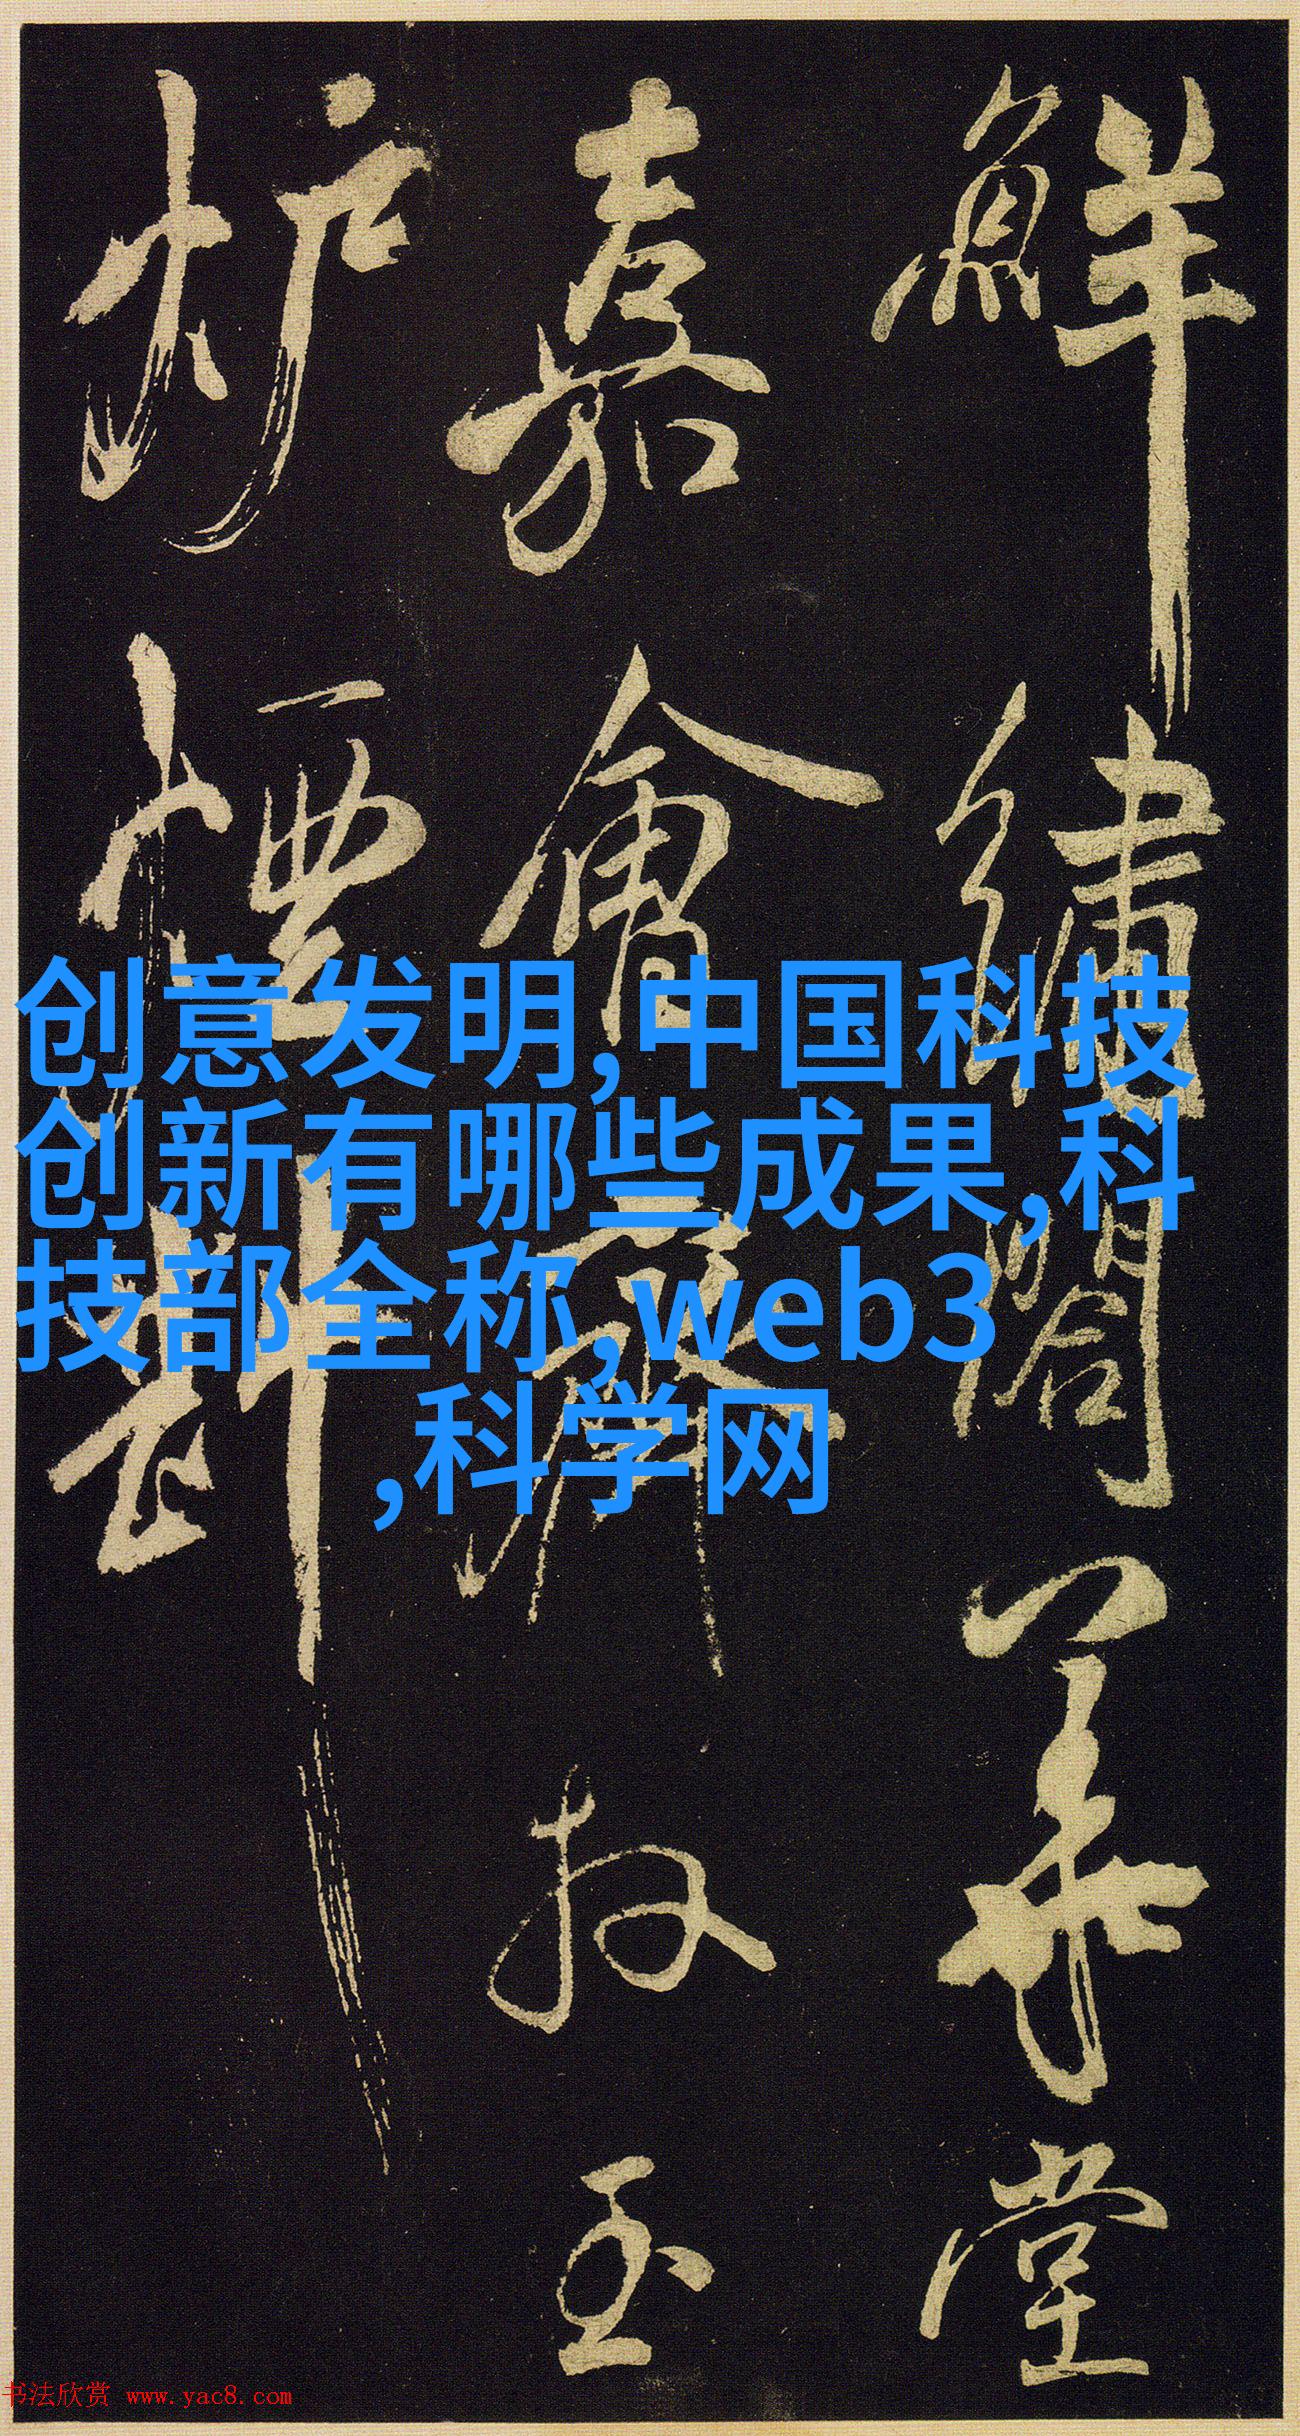 鮮繡閣華堂
嘉會玉
炉斟
创意发明,中国科技
创新有哪些成果,科
技部全称,web3
,科学网
书法欣赏 www.yac8.com